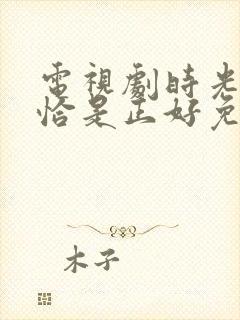 電視劇時光
恰是正好免
木子